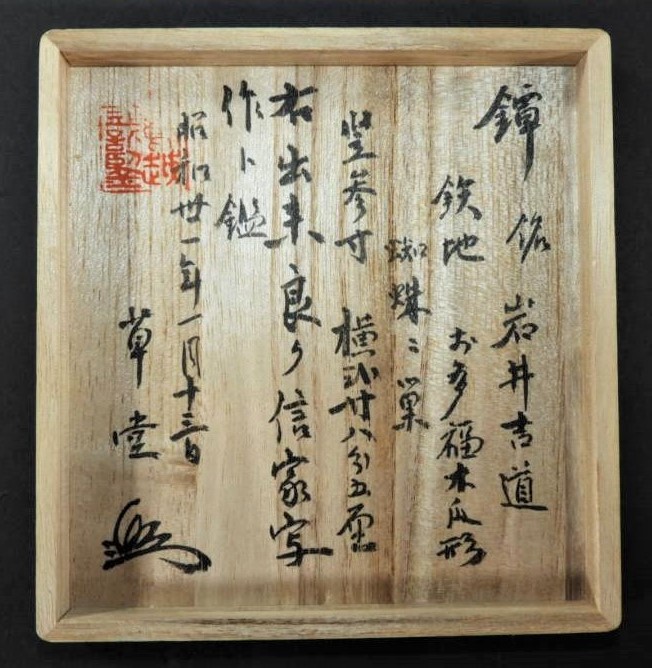 鐔 銘 岩井吉道
鉄地 お多福木瓜形
蜘蛛ニ巣
竪参寸 横弐寸八分五厘
右出来良ク信家写
作ト鑑
昭和卅一年一月十三日
草堂